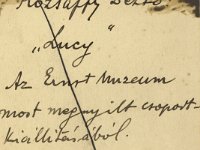 Rozsaffy Dezső
„Lucy”
Az Ernst Muzeum
most megnyilt csoport-
kiállitásából.